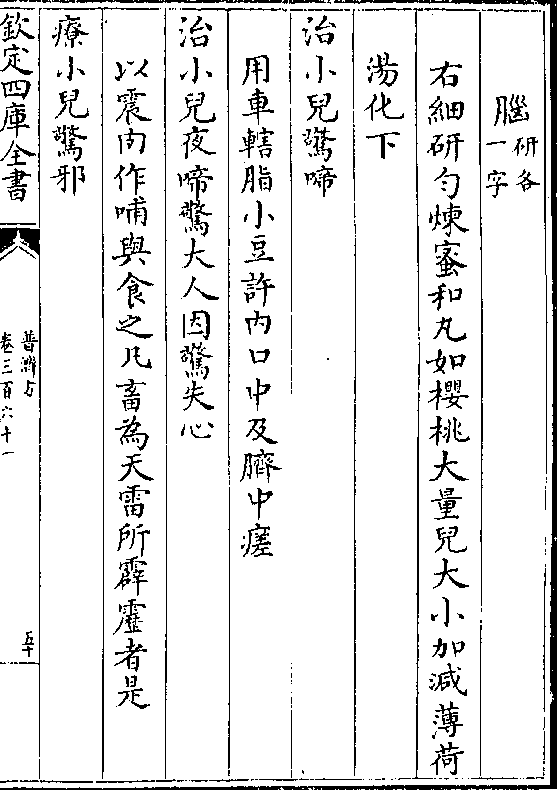 腦研各一字
右細研勻煉蜜和丸如櫻桃大量兒大小加減薄荷
湯化下
治小兒驚啼
用車轄脂小豆許内口中及臍中瘥
治小兒夜啼驚大人因驚失心
以震肉作哺與食之凡畜為天雷所霹靂者是
療小兒驚邪
欽定四庫全書
普濟方
卷三百六十一
五十